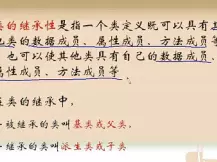 类的继承性是指一个类定义既可以具有其
他类的数据成员、属性成员、方法成员等
也可以使其他类具有自己的数据成员、
属性成员、方法成员等
在类的继承中，
被继承的类叫基类或父类，
继承的类叫派生类或子类